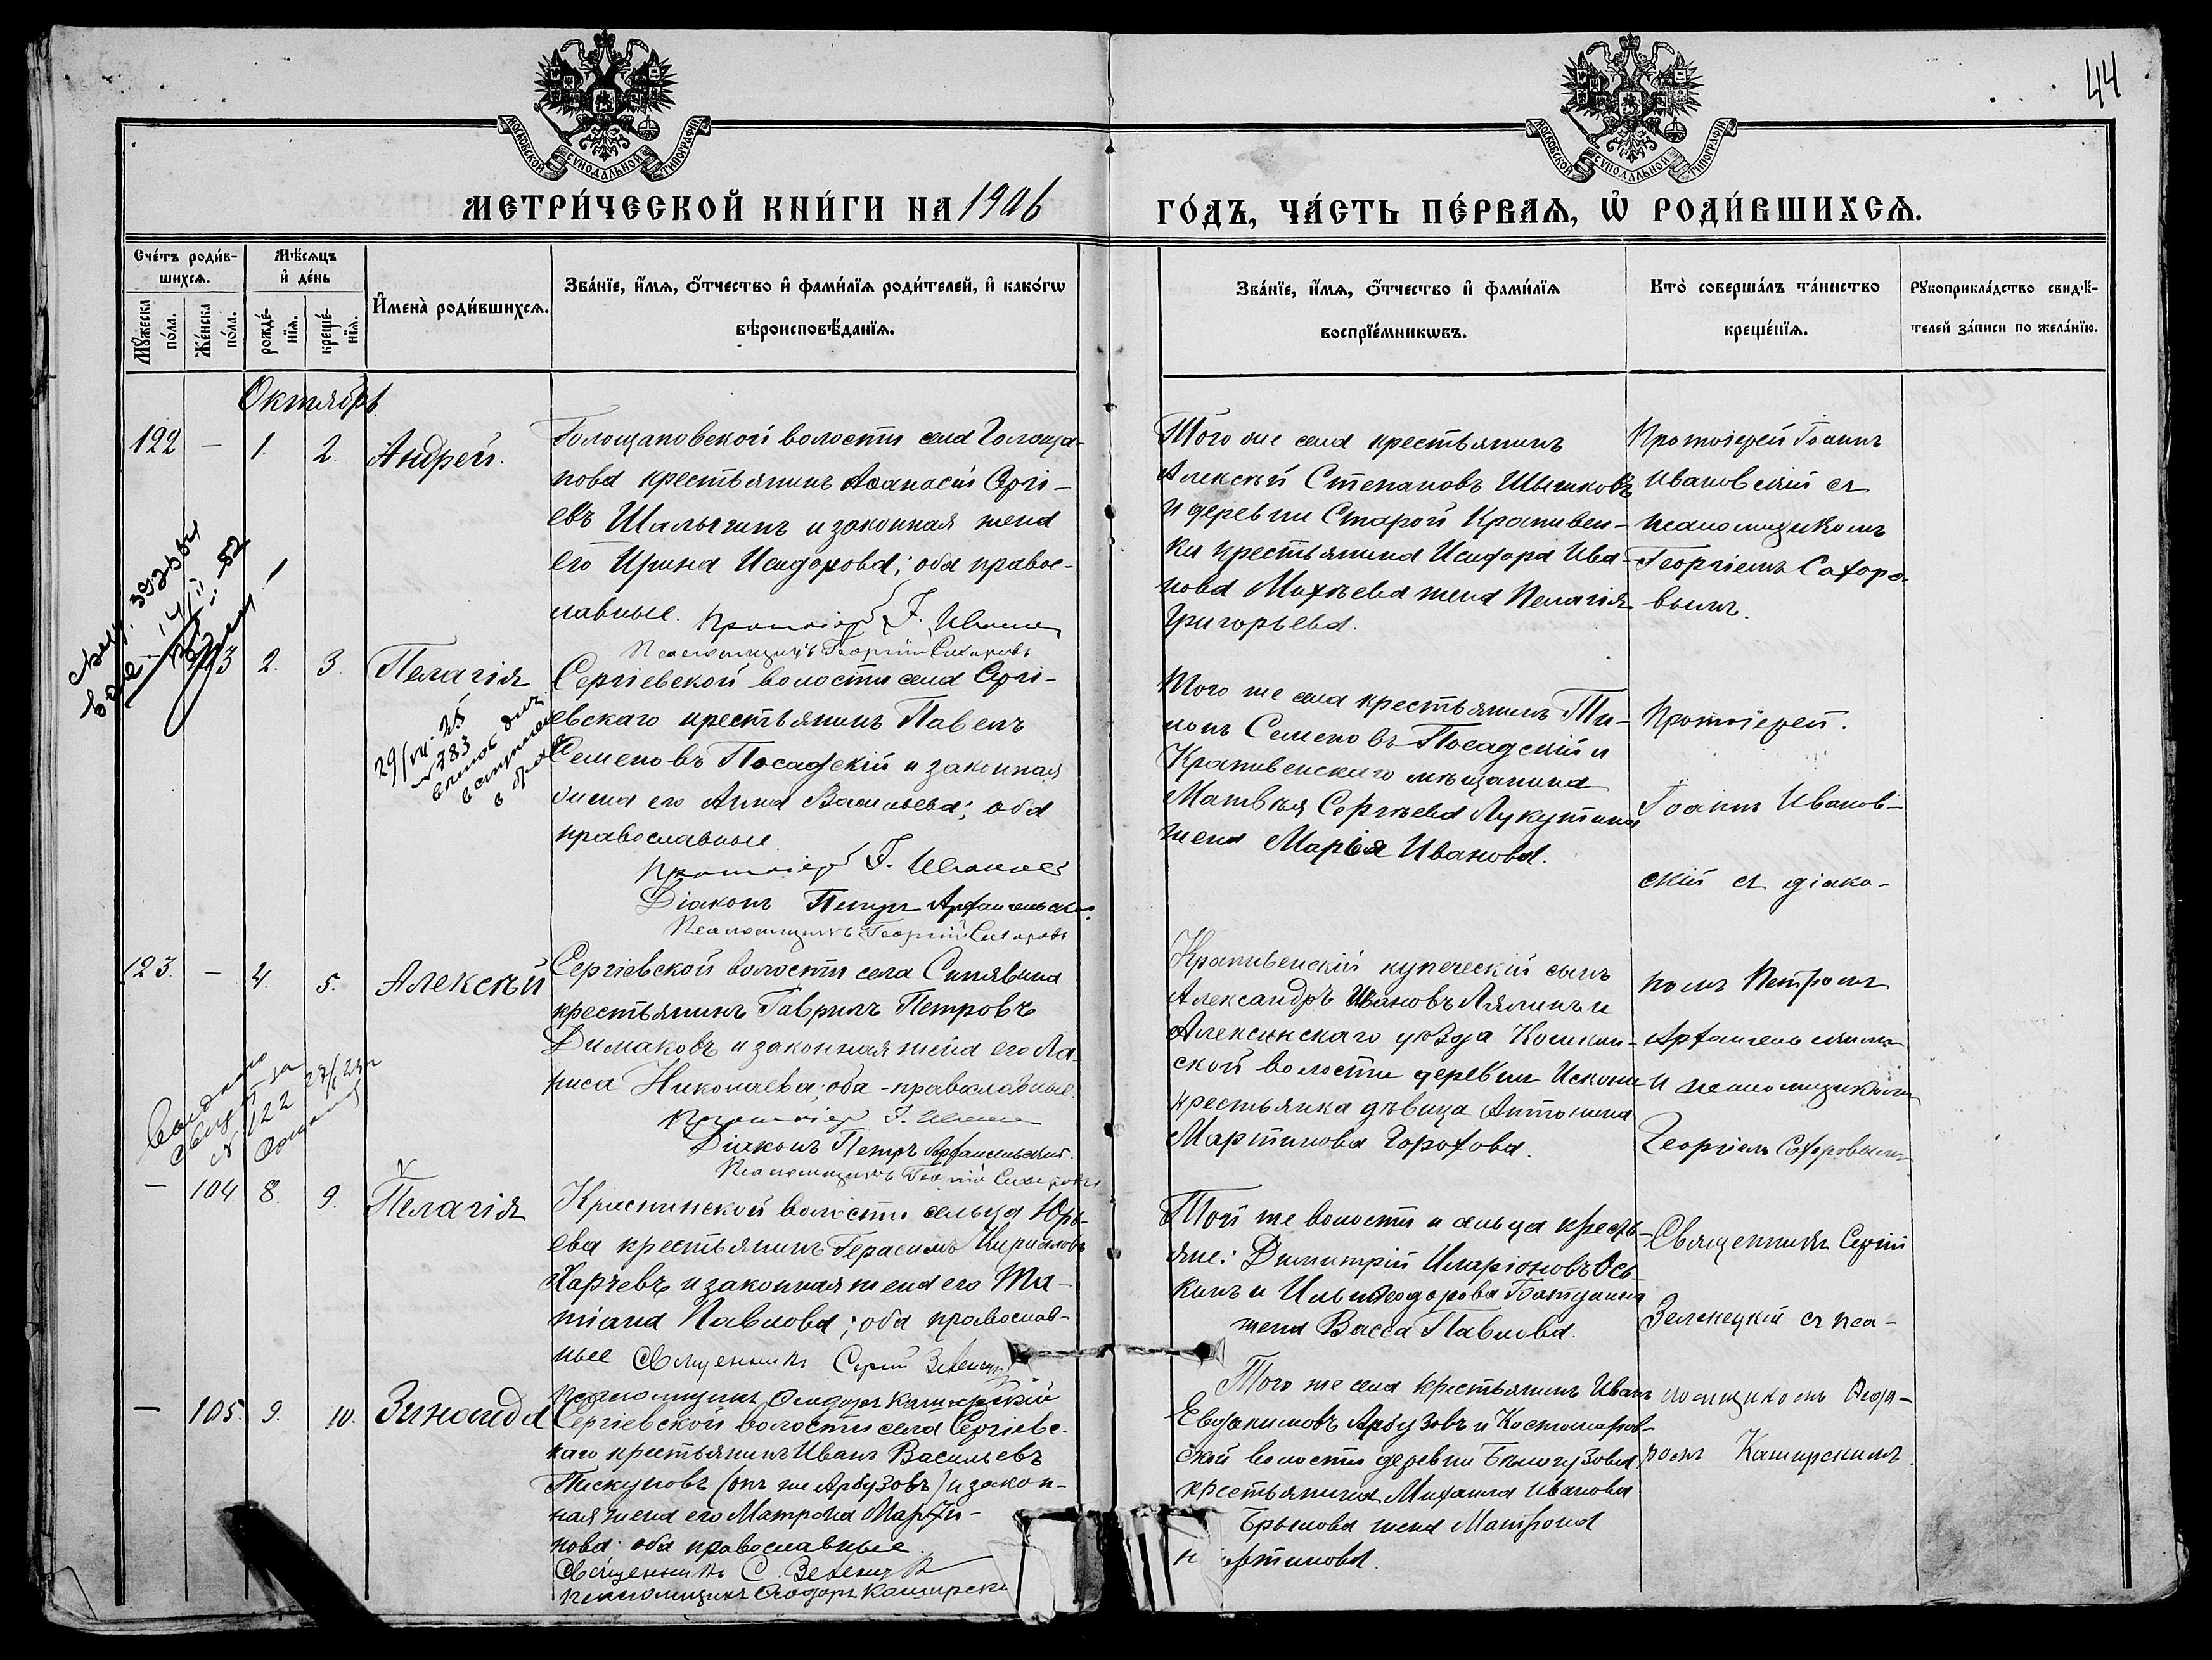 44
МОСКОВСКОЙ СѴНОДАЛЬНОЙ ТИПОГРАФІИ
МОСКОВСКОЙ СѴНОДАЛЬНОЙ ТИПОГРАФІИ
МЕТРИ́ЧЕСКОЙ КНИ́ГИ НА 1906
ГО́ДЪ, ЧА́СТЬ ПЕ́РВАѦ, Ѡ҆ РОДИ́ВШИХСѦ.
Сче́тъ роди́в-
шихсѧ.
Мꙋ́жеска по́ла.
Же́нска по́ла.
Мѣ́сѧцъ
и҆ де́нь
рожде́-
нїѧ.
креще́-
нїѧ.
И҆мена̀ роди́вшихсѧ.
Зва́нїе, и҆́мѧ, ѻ҆́тчество и҆ фами́лїѧ роди́телей, и҆ како́гѡ
вѣроисповѣ́данїѧ.
Зва́нїе, и҆́мѧ, ѻ҆́тчество и҆ фами́лїѧ
воспрїе́мникѡвъ.
Кто̀ соверша́лъ та́инство
креще́нїѧ.
Рꙋкоприкла́дство свидѣ́-
телей за́писи по жела́нїю.
Октябрь
122 — 1. 2. Андрей.
Голощаповской волости села Голоща-
пова крестьянинъ Аѳанасій Сергі-
евъ Шалыгинъ и законная жена
его Ирина Исидорова; оба правос-
лавные. Протоіерей І.
Псаломщикъ Георгій Сахаровъ
Того же села крестьянинъ
Алексѣй Степановъ Шышковъ
и деревни Старой Крапивен-
ки крестьянина Исидора Ива-
нова Михѣева жена Пелагія
Григорьева.
Протоіерей Іоаннъ
Ивановскій съ
псаломщикомъ
Георгіемъ Сахаро-
вымъ.
— 103 2. 3. Пелагія
29/VII 25
№ 783
Сергіевской волости села Сергі-
евскаго крестьянинъ Павелъ
Семеновъ Посадскій и законная
жена его Анна Васильева; оба
православные.
Протоіерей І.
Діаконъ Петръ Архангельскій
Псаломщикъ Георгій Сахаровъ
Того же села крестьянинъ Ти-
монъ Семеновъ Посадскій и
Крапивенскаго мѣщанина
Матвѣя Сергѣева Лукутина
жена Марія Иванова.
Протоіерей
Іоаннъ Иванов-
скій съ діако-
123. — 4. 5. Алексѣй
№ 122
Сергіевской волости села Синявина
крестьянинъ Гавріилъ Петровъ
Димаковъ и законная жена его Ла-
риса Николаева; оба православные.
Протоіерей І.
Діаконъ Петръ Архангельскій.
Псаломщикъ Георгій Сахаровъ
Крапивенскій купеческій сынъ
Александръ Ивановъ Лялинъ и
Алексинскаго уѣзда
ской волости деревни
крестьянка дѣвица Антонина
Мартинова Горохова.
номъ Петромъ
Архангельскимъ
и псаломщикомъ
Георгіемъ Сахаровымъ
— 104 8. 9. Пелагія
Краснинской волости сельца Юрь-
ева крестьянинъ Герасимъ Кириловъ
Харчевъ и законная жена его Та-
тіана Павлова; оба православ-
ные Священникъ Сергій Зеленецкій
Псаломщикъ Ѳеодоръ Каширскій
Той же волости и сельца кресть-
яне: Димитрій Иларіоновъ Ось-
кинъ и Ильи Ѳеодорова
жена Васса Павлова.
Священникъ Сергій
Зеленецкій съ пса-
— 105. 9. 10. Зинаида
Сергіевской волости села Сергіевс-
каго крестьянинъ Иванъ Васильевъ
Пискуновъ (онъ же Арбузовъ) и закон-
ная жена его Матрона
нова; оба православные.
Священникъ С. Зеленецкій
Псаломщикъ Ѳеодоръ Каширскій
Того же села крестьянинъ Иванъ
Евдокимовъ Арбузовъ и Костомаров-
ской волости деревни
крестьянина Михаила Иванова
Брылова жена Матрона
ломщикомъ Ѳеодо-
ромъ Каширскимъ.